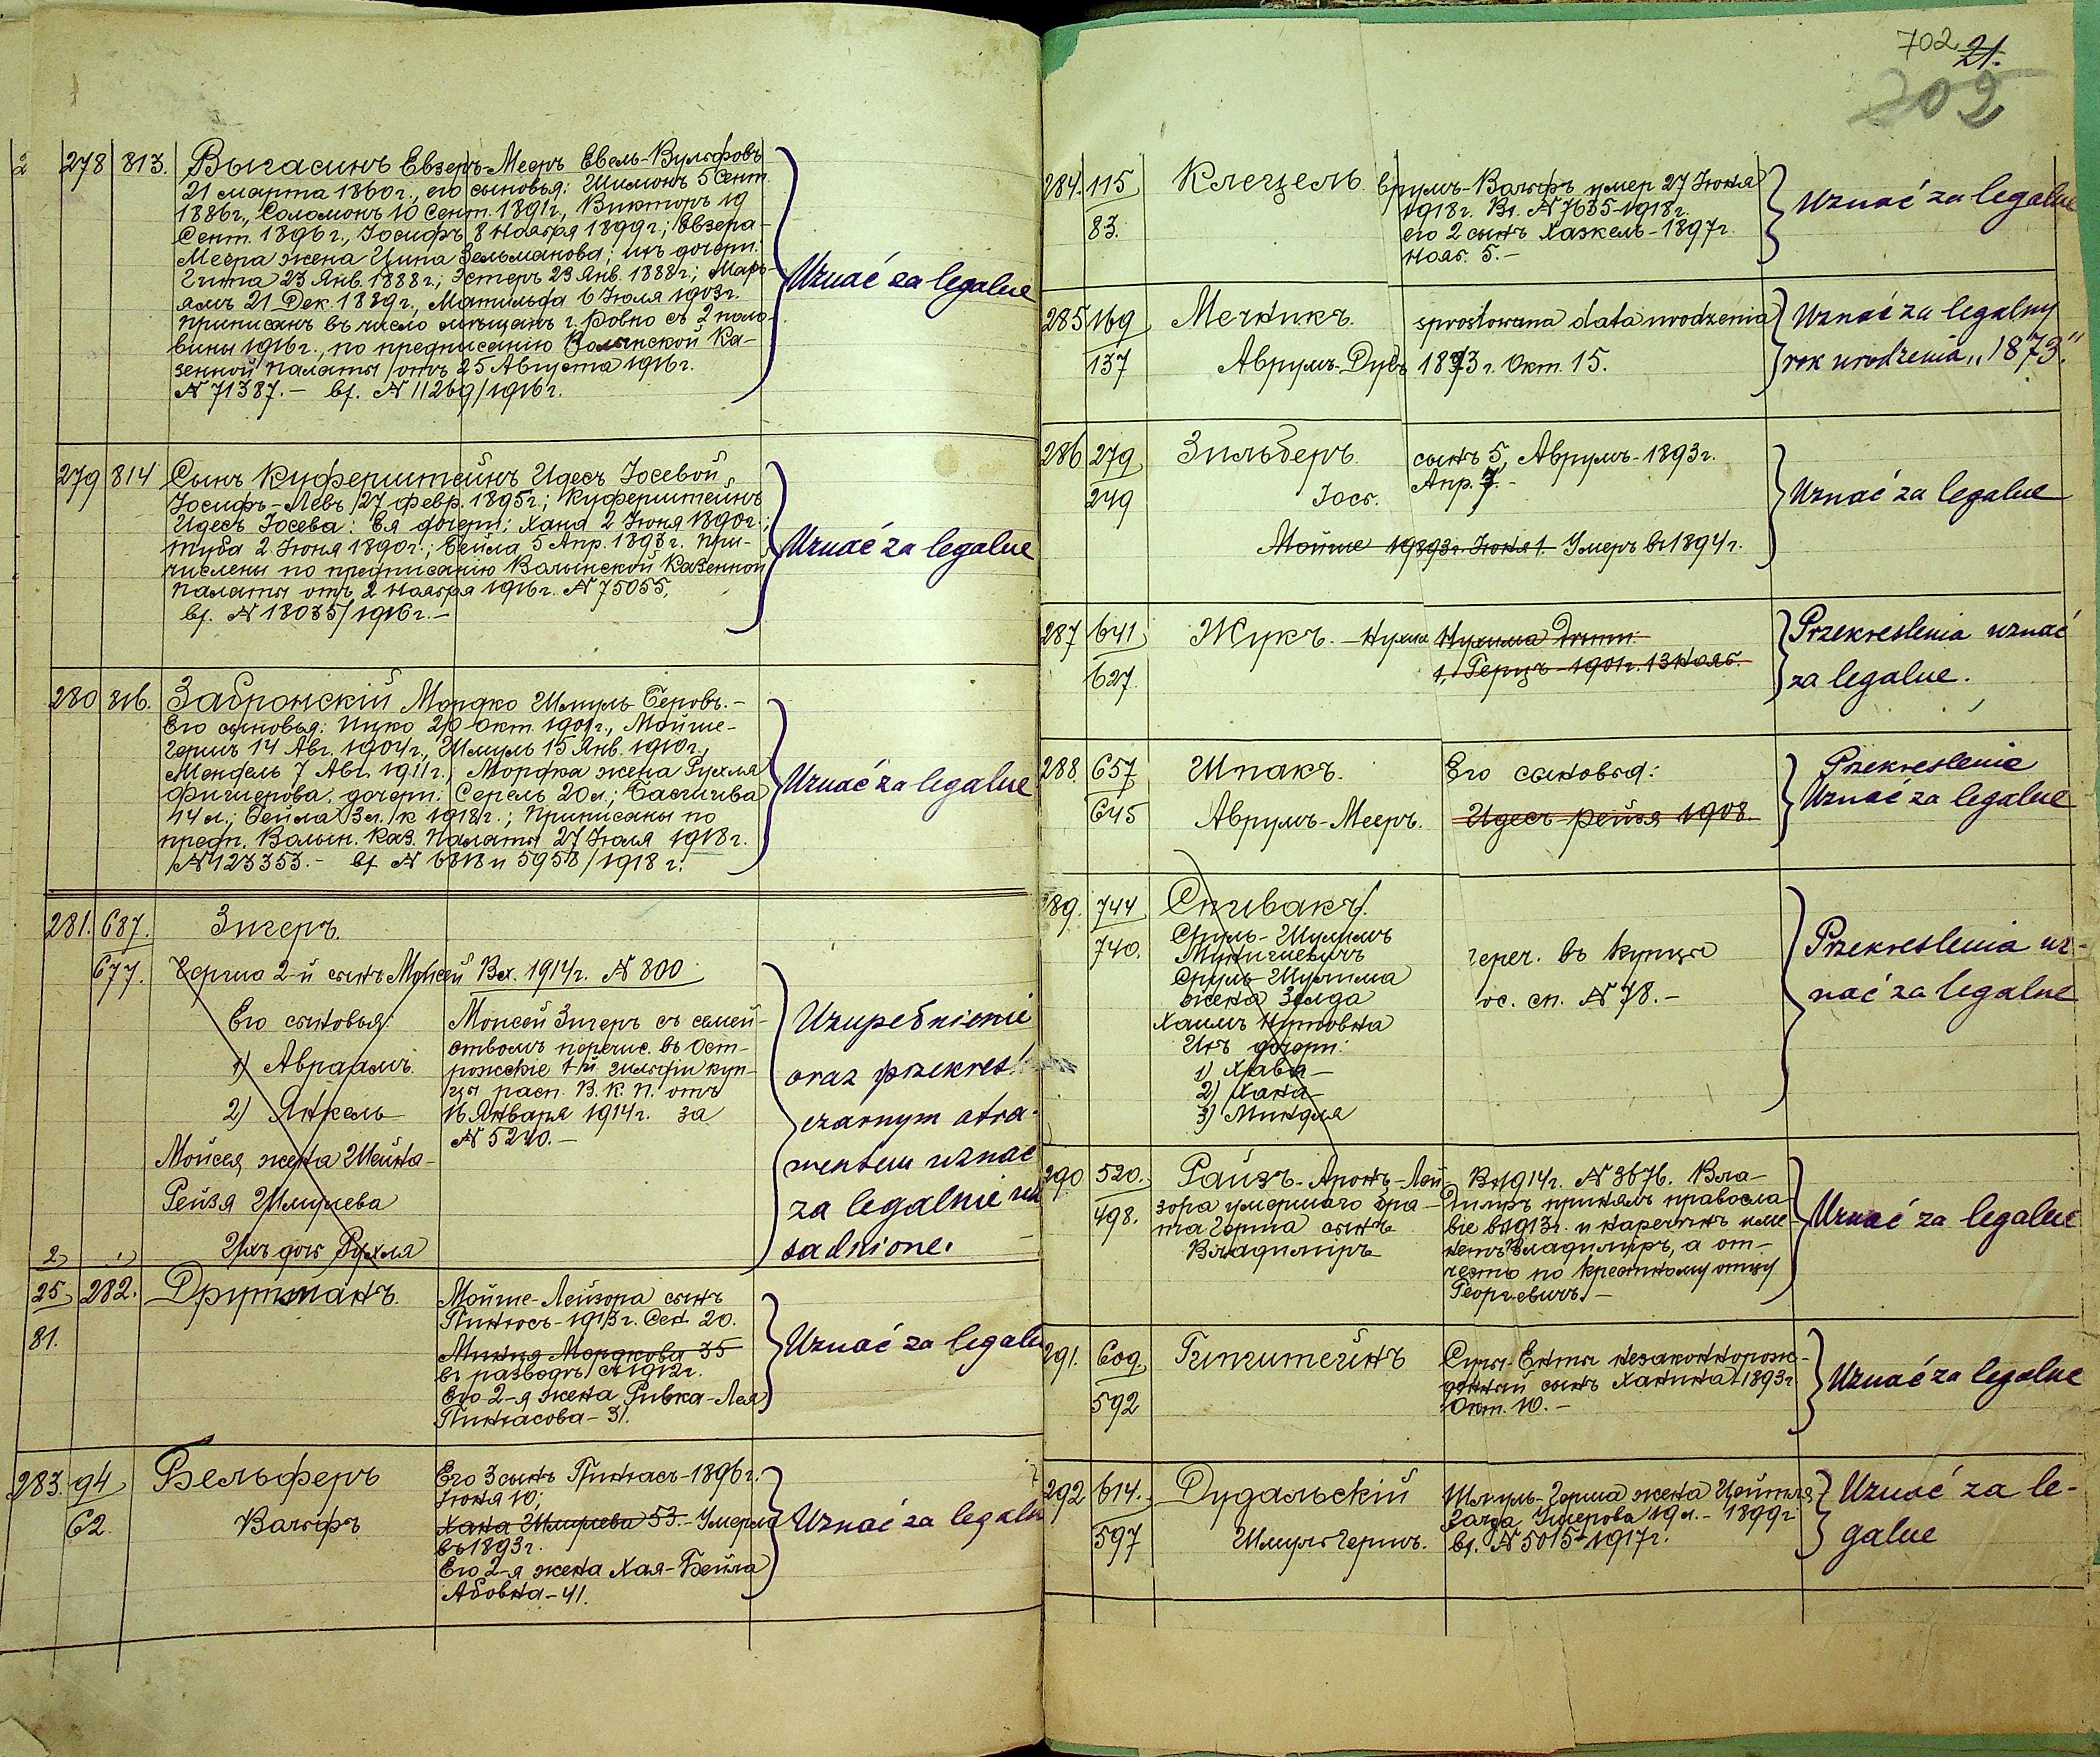 278 813. Выгасинъ Евзеръ-Мееръ Евель-Вульфовъ
21 марта 1860 г., его сыновья: Шимонъ 5 Сент.
1886 г., Соломонъ 10 Сент. 1891 г., Викторъ 19
Сент. 1896 г., Іосифъ 8 Ноября 1899 г.; Евзера-
Меера жена Ципа Зельманова; ихъ дочери:
Гитта 23 Янв. 1888 г.; Эстеръ 23 Янв. 1888 г.; Марь-
ямъ 21 Дек. 1889 г., Матильда 6 Іюля 1903 г.
приписанъ въ число мѣщанъ г. Ровно съ 2 поло-
вины 1916 г., по предписанію Волынской Ка-
зенной Палаты отъ 25 Августа 1916 г.
№ 71387. — вх. № 11269/1916 г.
Uznać za legalne
279 814 Сынъ Куферштейнъ Идесъ Іосевой
Іосифъ-Левъ 27 февр. 1895 г.; Куферштейнъ
Идесъ Іосева: Ея дочери: Хана 2 Іюня 1890 г.;
Туба 2 Іюня 1890 г.; Бейла 5 Апр. 1893 г. При-
числены по предписанію Волынской Казенной
Палаты отъ 2 Ноября 1916 г. № 75055,
вх. № 18035/1916 г. —
Uznać za legalne
280 816. Забронскій Мордко Шмуль-Беровъ. —
Его сыновья: Ицко 20 Окт. 1901 г., Мойше-
Гершъ 14 Авг. 1904 г., Шмуль 15 Янв. 1910 г.,
Мендель 7 Авг. 1911 г., Мордка жена Рухля
Фишерова, дочери: Серель 20 л.; Басшива
14 л.; Бейла 3 л. к 1918 г.; Приписаны по
предп. Волын. Каз. Палаты 27 Іюля 1918 г.
№ 123353. — вх № 6818 и 5958/1918 г.
Uznać za legalne
281. 687. Зигеръ.
677. Герша 2-й сынъ Мойсей Вх. 1914 г. № 800
Его сыновья:
1) Авраамъ.
2) Янкель
Мойсея жена Шейна-
Рейзя Шмулева
Ихъ дочь Рухля
Моисей Зигеръ съ семей-
ствомъ перечис. въ Ост-
рожскіе 1-й гильдіи куп-
цы расп. В. К. П. отъ
16 Января 1914 г. за
№ 5240. —
Uzupełnienie
oraz przekreśl.
czarnym atra-
mentem uznać
za legalnie
sadnione.
25 282. Друтманъ.
81.
Мойше-Лейзора сынъ
Пинхосъ-1913 г. Сен. 20.
Минця Мордкова 35
въ разводѣ съ 1912 г.
Его 2-я жена Ривка-Лея
Пинхасова-31.
Uznać za legaln
283. 94 Бельферъ
62. Вольфъ
Его 3 сынъ Пинхасъ-1896 г.
Іюня 10;
Хана Шмулева 53. Умерла
въ 1893 г.
Его 2-я жена Хая-Бейла
Абовна-41.
Uznać za legaln
702 21.
202
284. 115 Клецель.
83.
Врумъ-Вольфъ умер 27 Іюня
1918 г. Вх. № 7635-1918 г.
его 2 сынъ Хаскель-1897 г.
Нояб. 5. —
Uznać za legalne
285 169 Мечникъ.
137 Аврумъ-Дувъ
sprostowana data urodzenia
1873 г. Окт. 15.
Uznać za legalny
rok urodzenia „1873."
286 279 Зильберъ.
249 Іосъ.
сынъ 5, Аврумъ-1893 г.
Апр. 7. -
Мойше 1893 г. Іюня 1. Умеръ въ 1894 г.
Uznać za legalne
287 641 Жукъ. — Нухим
627.
Нухима Дѣти:
1, Герцъ-1901 г. 13 Нояб.
Przekreślenia uznać
za legalne.
288. 657 Шпакъ.
645 Аврумъ-Мееръ.
Его сыновья:
Идесъ-рейзя 1908.
Przekreślenie
Uznać za legalne
289. 744 Спивакъ.
740. Сруль-Шулимъ
Сруль-Шулима
жена Зелда
Хаимъ
Ихъ дочери:
1) Хава —
2) Хана —
3) Миндля
переч. въ купцы
ос. сп. № 78. —
Przekreślenia uz-
nać za legalne
290 520. Райзъ-Аронъ-Лей
498. зора умершаго бра-
та Герша сынъ
Владиміръ
Вх 1914 г. № 3676. Вла-
диміръ принялъ правосла-
віе въ 1913 г. и нареченъ име-
немъ Владиміръ, а от-
чество по крестному отцу
Георгіевичъ. —
Uznać za legalne
291. 609 Гинштейнъ
592
Суры-Енты незаконнорож-
денный сынъ Ханина-1893 г
Окт. 10. —
Uznać za legalne
292 614. Дудальскій
597 Шмуль-Гершъ.
Шмуль-Герша жена Цейтля
Сарра Ушерова 19 л. - 1899 г
вх. № 5015-1917 г.
Uznać za le-
galne